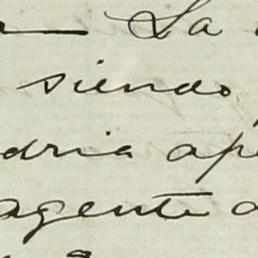 La
siendo
dria ap
agente